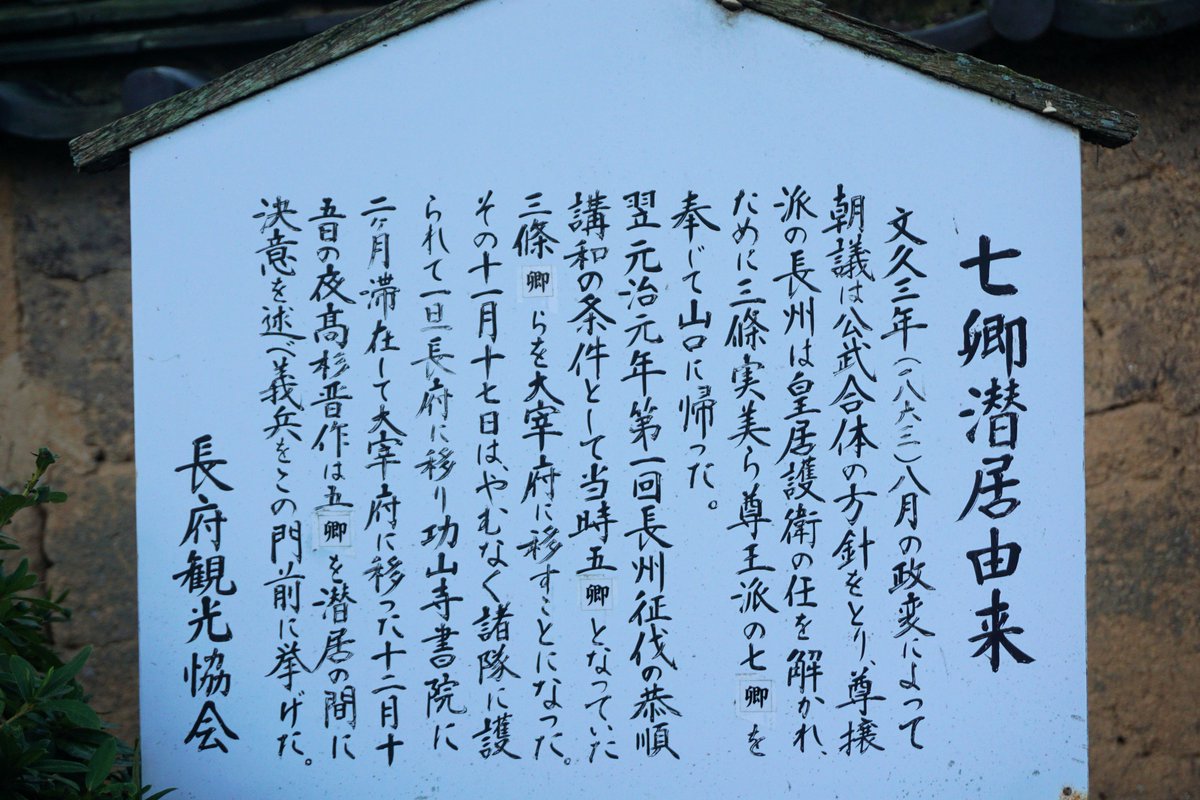 七卿潜居由来
文久三年(一八六三)八月の政変によって
朝議は公武合体の方針をとり、尊攘
派の長州は皇居護衛の任を解かれ、
ために三條実美ら尊王派の七卿を
奉じて山口に帰った。
翌元治元年第一回長州征伐の恭順
講和の条件として当時五卿となっていた
三條卿らを大宰府に移すことになった。
その十一月十七日は、やむなく諸隊に護
られて一旦長府に移り功山寺書院に
二ヶ月滞在して大宰府に移った十二月十
五日の夜髙杉晋作は五卿を潜居の間に
決意を述べ義兵をこの門前に挙げた。
長府観光協会